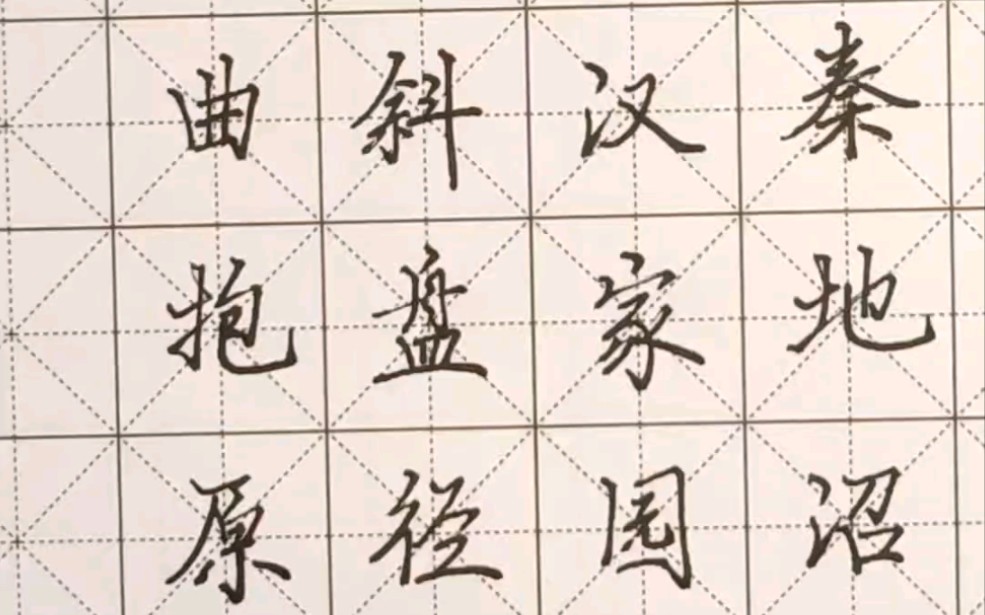 秦地沼
汉家园
斜盘径
曲抱原